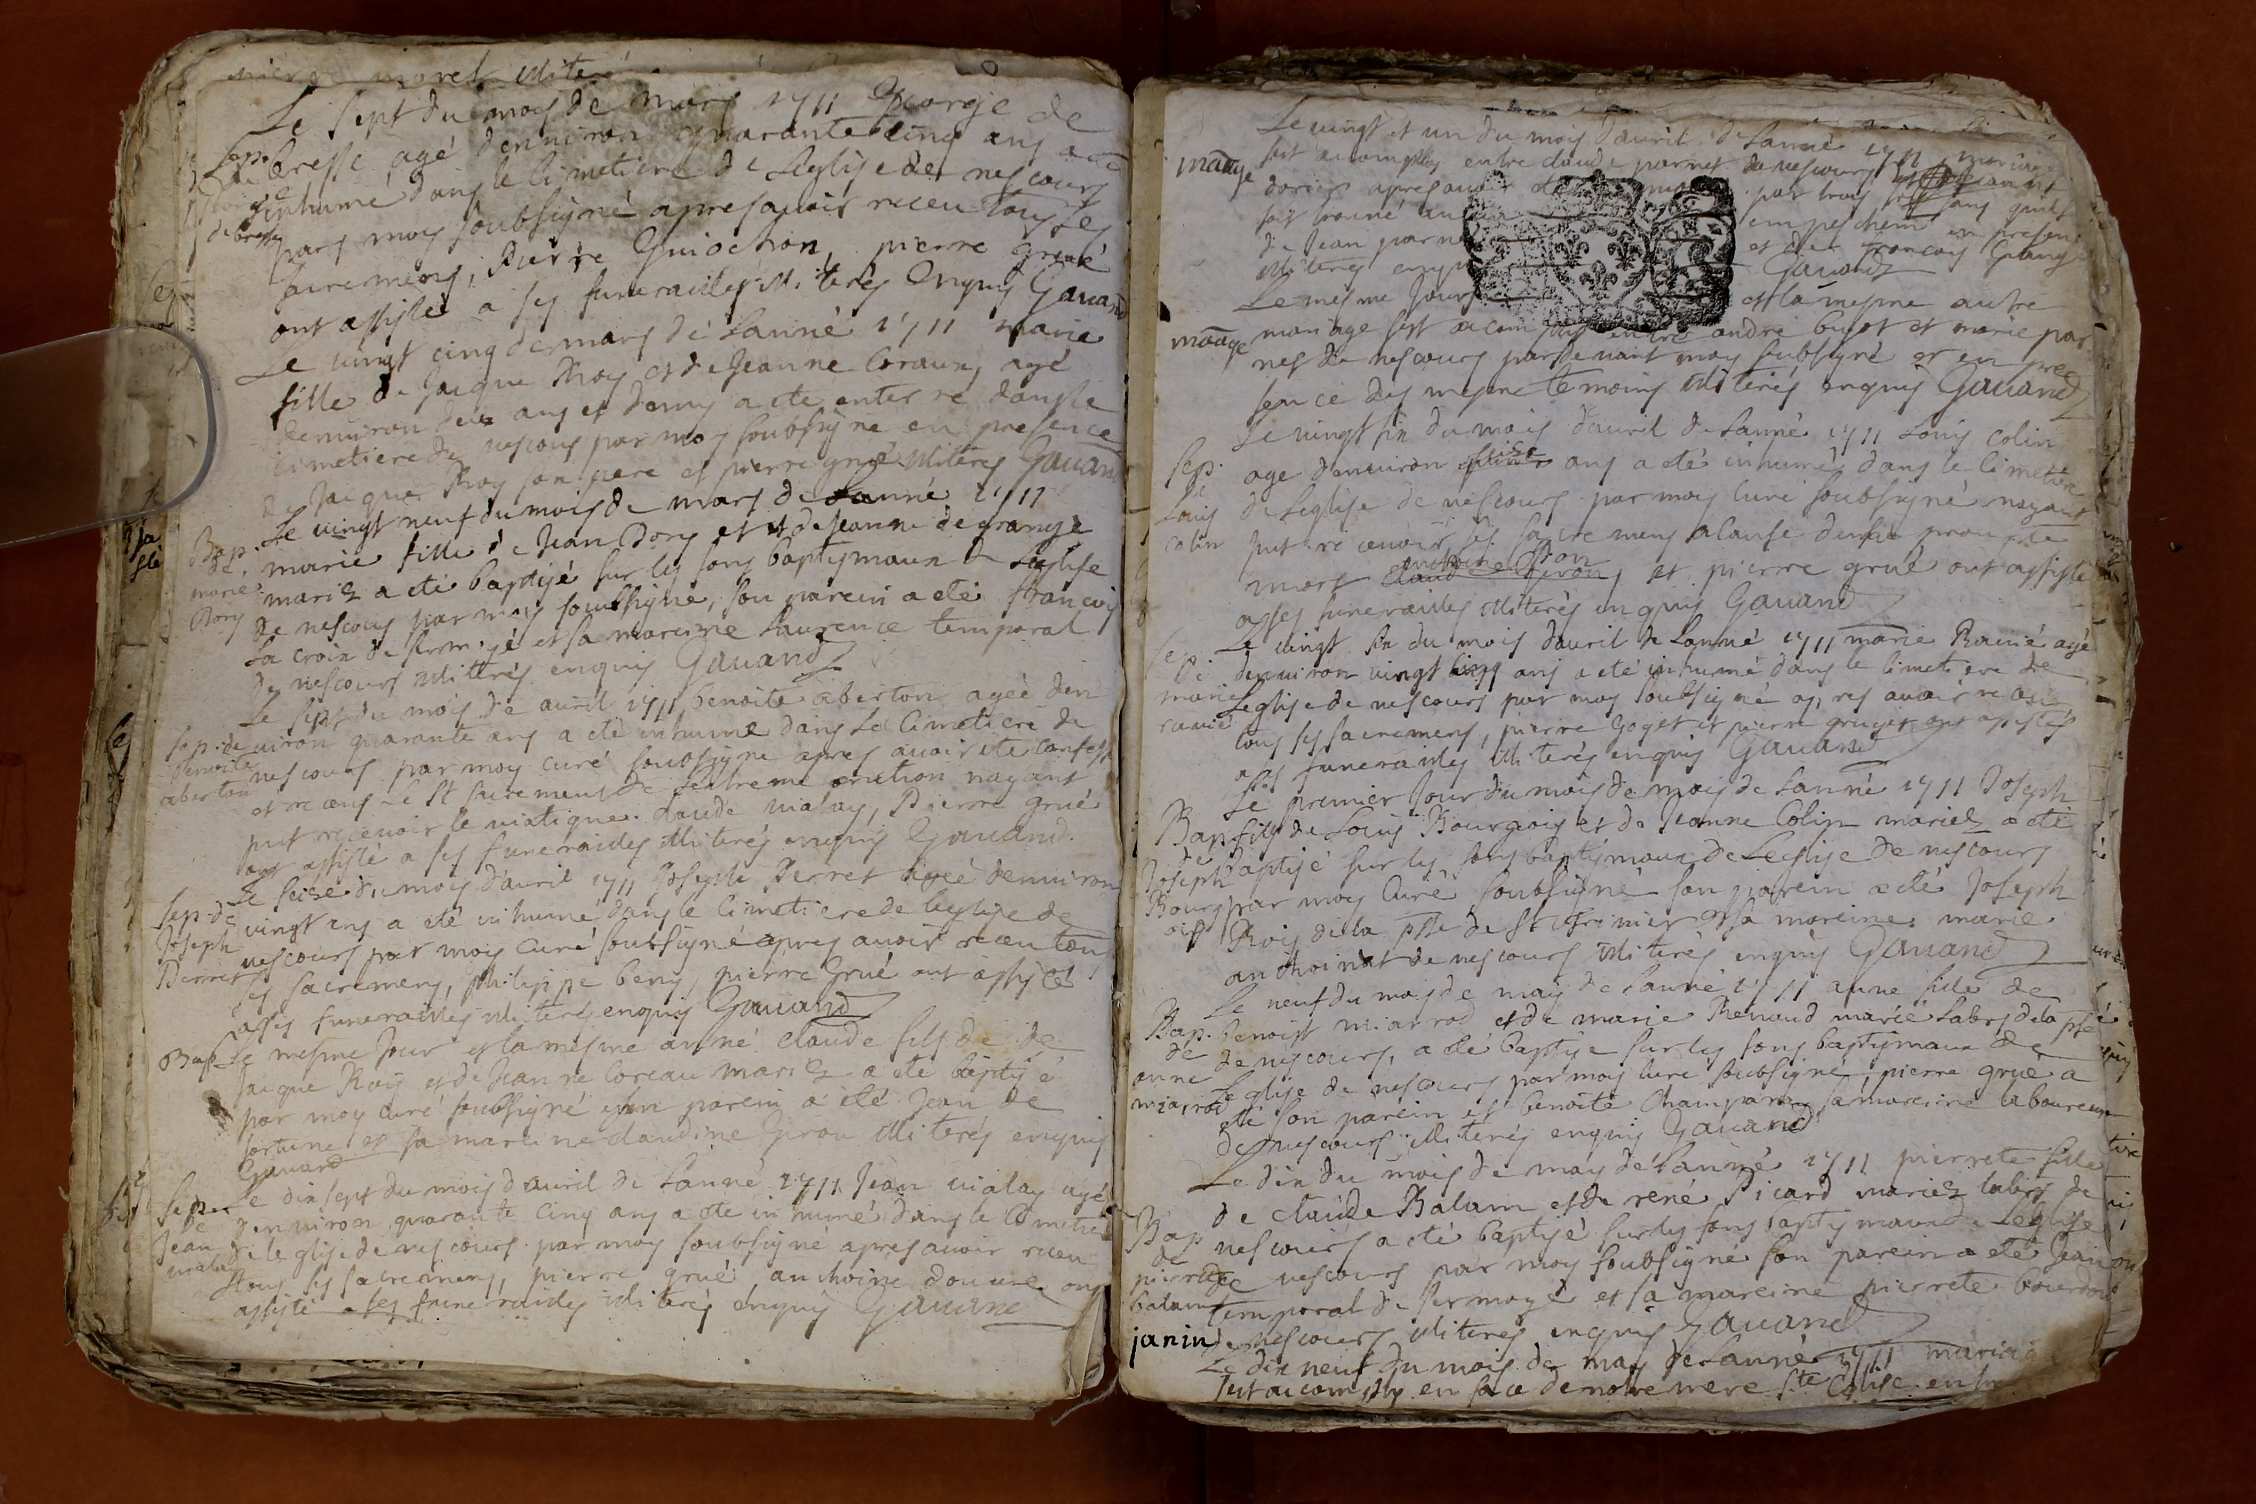 pierre morel illiteré
Le sept du mois de mars 1711 George de
Sep. bresse agé denuiron quarante cinq ans a été
de
George inhumé dans le cimetiere de Leglise de nescours
de bresse
par moy soubsigné apres auoir receu tous ses
sacremens, Pierre Guiochon, pierre grué
ont assisté a ses funerailles illiterés Enquis Gauand
Le uingt cinq de mars de Lanné 1711 marie
fille de Jacque Roy et de Jeanne Coraux, agé
denuiron deux ans et demy a eté enterré dans le
cimetiere de nescours par moy soubsigné en presence
de Jacques Roy son pere et pierre grué illiterés Gauand
Le uingt neuf du mois de mars de Lanné 1711
Bap. marie fille de Jean Dory et de Jeanne degrange
de
marie mariez a eté baptisé sur les fons baptismaux de Leglise
Dory de nescours par moy soubsigné, son parein a eté francois
La croix de sermoyé et sa mareine Laurence temporal
de nescours illiterés enquis Gauand
Le sept du mois de auril 1711 benoite aberton agée den
sep. de uiron quarante ans a eté inhumé dans Le Cimetiere de
benoite nescours par moy curé soubsigné apres auoir eté confessé
aberton et receus Le St sacrement de Lextreme onction nayant
put receuoir le uiatique. claude uialay, Pierre grué
ont assisté a ses funerailles illiterés enquis Gauand.
Le seize du mois dauril 1711 Joseph Perret agé denuiron
sep. de uingt ans a eté inhumé dans le cimetiere de leglise de
Joseph nescours par moy Curé soubsigné apres auoir receu tous
Perret ses sacremens, philippe beny, pierre Grué ont assistés
asses funerailles illiterés enquis Gauand
Bap. Le mesme Jour et la mesme anné claude fils de de
Jacque Roy et de Jeanne Coreau mariez a eté baptisé
par moy curé soubsigné son parein a eté Jean de
fortune et sa mareine claudine giron illiterés enquis
Gauand
Sep. Le dix sept du mois dauril de Lanné 1711 Jean uialay agé
de denuiron quarante cinq ans a eté inhumé dans le Cimetiere
Jean de leglise de nescours par moy soubsigné apres auoir receu
uialay tous ses sacremens, pierre grué, anthoine douure ont
assisté a ses funerailles illiterés Enquis Gauand
Le uingt et un du mois dauril de Lanné 1711 mariage
maage fust acomply entre claude parnet de nescours et
dorier apres auoir par trois fois sans quil
soit trouué aucun empeschem en presen
de Jean parnet et de francois Grange
illiterés enquis Gauand
Le mesme Jour et la mesme autre
maage mariage fust acomply entre andré buyot et marie par
net de nescours par deuant moy soubsigné et en pre
sence des mesme temoins illiterés enquis Gauand
Le uingt six du mois dauril de Lanné 1711 Louis colin
Sep. age denuiron seize ans a eté inhumé dans le Cimetiere
de
Louis de Leglise de nescours par moy Curé soubsigné nayant
colin put receuoir ses sacremens a cause dune prompte
mort anthoine giron et pierre grué ont assisté
asses funerailles illiterés enquis Gauand
Le uingt six du mois dauril de Lanné 1711 marie Rauié agé
Sep. de denuiron uingt cinq ans a eté inhumé dans le cimetiere de
marie Leglise de nescours par moy soubsigné apres auoir receu
rauié tous ses sacremens, pierre Goyet et pierre gruyer ont assistés
a ses funerailles illiterés enquis Gauand
Le premier Jour du mois de may de Lanné 1711 Joseph
Bap. fils de Louis Bourgeois et de Jeanne Colin mariez a eté
de
Joseph baptisé sur les fons baptismaux de Leglise de nescours
Bourge par moy Curé soubsigné son parein a eté Joseph
ois Roy de la psse de St trinier et sa mareine marie
anthoinat de nescours illiterés enquis Gauand
Le neuf du mois de may de Lanné 1711 anne fille de
Bap. benoist miarrod et de marie Renaud mariés Labrs de la psse
de de nescours, a eté baptisé sur les fons baptismaux de
anne Leglise de nescours par moy curé soubsigné, pierre grué a
miarrod eté son parein et benoite Champanay sa mareine laboureurs
de nescours illiterés enquis Gauand
Le dix du mois de may de Lanné 1711 pierrete fille
de claude Balam et de rené Picard mariez labrs de
Bap nescours a eté baptisé sur les fons baptismaux de Leglise
de
pierrete de nescours par moy soubsigné son parein a eté Jean
balam temporal de sermoyé et sa mareine pierrete bourdon
janin de nescours illiterés enquis Gauand
Le dix neuf du mois de may de Lanné 1711 mariage
fust acomply en face de notre mere Ste Eglise entre